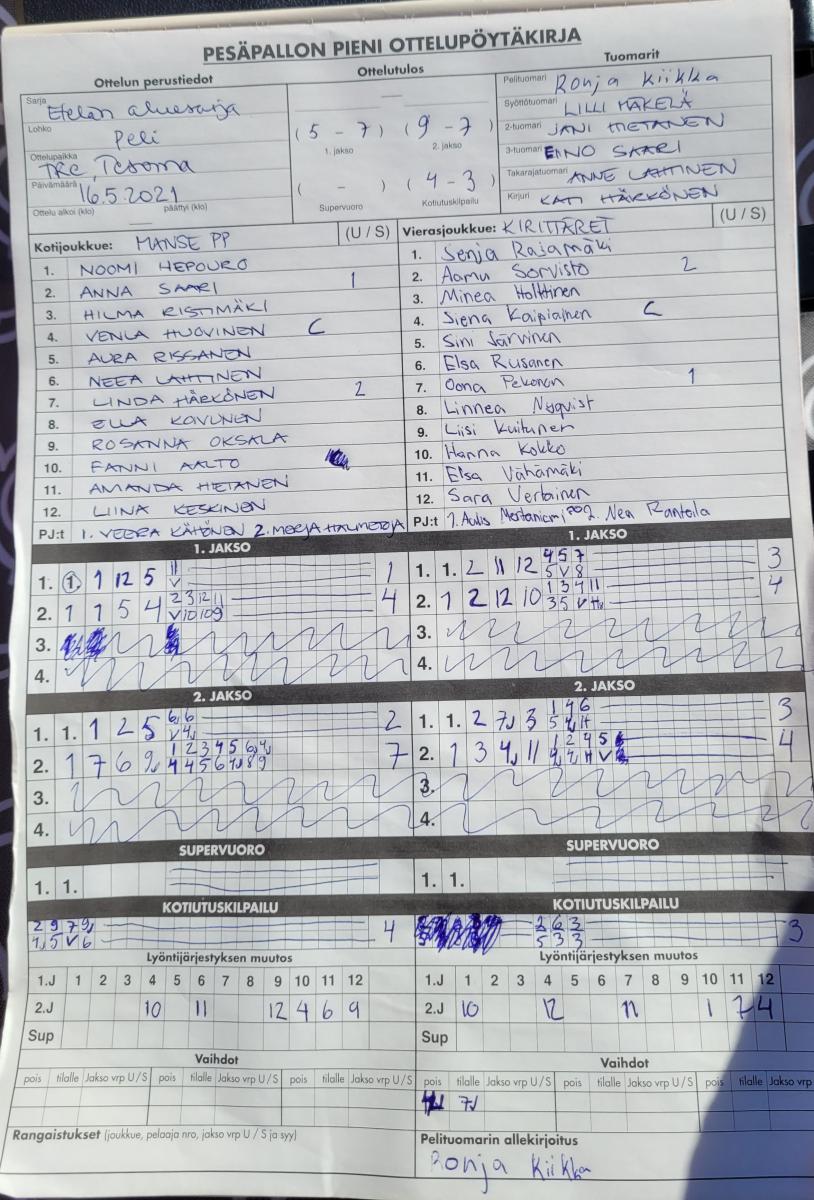 PESÄPALLON PIENI OTTELUPÖYTÄKIRJA
Ottelun perustiedot Ottelutulos Tuomarit
Sarja Etelän aluesarja
Lohko Peli
Ottelupaikka TRE, Tesoma
Päivämäärä 16.5.2021
Ottelu alkoi (klo) päättyi (klo)
(5 - 7) (9 - 7)
1. jakso 2. jakso
( - ) (4 - 3)
Supervuoro Kotiutuskilpailu
Pelituomari Ronja Kiikka
Syöttötuomari LILLI MÄKELÄ
2-tuomari JANI HIETANEN
3-tuomari EINO SAARI
Takarajatuomari ANNE LAHTINEN
Kirjuri KATI HÄRKÖNEN
Kotijoukkue: MANSE PP (U / S)
1. NOOMI HEPOURO
2. ANNA SAARI 1
3. HILMA RISTIMÄKI
4. VENLA HUOVINEN C
5. AURA RISSANEN
6. NEEA LAHTINEN
7. LINDA HÄRKÖNEN 2
8. ELLA KOVUNEN
9. ROSANNA OKSALA
10. FANNI AALTO
11. AMANDA HIETANEN
12. LIINA KESKINEN
PJ:t 1. VEERA KÄHÖNEN 2. MERJA
Vierasjoukkue: KIRITTÄRET (U / S)
1. Senja Rajamäki
2. Aamu Sorvisto 2
3. Minea Holttinen
4. Siena Kaipiainen C
5. Sini Järvinen
6. Elsa Rusanen
7. Oona Pekonen 1
8. Linnea Nyqvist
9. Liisi Kuitunen
10. Hanna Kokko
11. Elsa Vähämäki
12. Sara Vertainen
PJ:t 1. Aulis 2. Nea Rantoila
1. JAKSO
1. 1. 1 12 5 11 V 1
2. 1 1 5 4 2 3 12 11 V 10 10 9 4
3.
4.
1. JAKSO
1. 1. 2 11 12 4 5 7 5 V 8 3
2. 1 2 12 10 1 3 4 11 3 5 V 4
3.
4.
2. JAKSO
1. 1. 1 2 5 2
2. 1 7 6 9J 1 2 3 4 5 6J 4J 4 4 5 6 7J 8 9 7
3.
4.
2. JAKSO
1. 1. 2 7J 3 1 4 6 3
2. 1 3 4J 11 1 2 4 5 4
3.
4.
SUPERVUORO
1. 1.
SUPERVUORO
1. 1.
KOTIUTUSKILPAILU
2 9 7 9J
1J 5 V 6 4
KOTIUTUSKILPAILU
2 6 3
5 3 3 3
Lyöntijärjestyksen muutos
1.J 1 2 3 4 5 6 7 8 9 10 11 12
2.J 10 11 12 4 6 9
Sup
Lyöntijärjestyksen muutos
1.J 1 2 3 4 5 6 7 8 9 10 11 12
2.J 10 12 11 1 7 4
Sup
Vaihdot
pois tilalle Jakso vrp U / S pois tilalle Jakso vrp U / S pois tilalle Jakso vrp U / S
Vaihdot
pois tilalle Jakso vrp U / S pois tilalle Jakso vrp U / S pois tilalle Jakso vrp
7J
Rangaistukset (joukkue, pelaaja nro, jakso vrp U / S ja syy)
Pelituomarin allekirjoitus
Ronja Kiikka